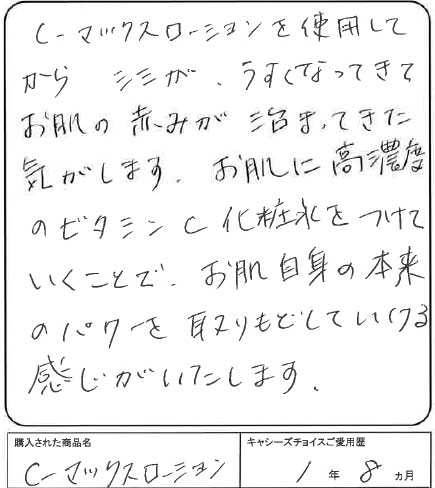 C-マックスローションを使用して
から シミが、うすくなってきて
お肌の赤みが治まってきた
気がします。お肌に高濃度
のビタミンC化粧水をつけて
いくことで、お肌自身の本来
のパワーを取りもどしていける
感じがいたします。
購入された商品名 キャシーズチョイスご愛用歴
C-マックスローション 1年8ヵ月